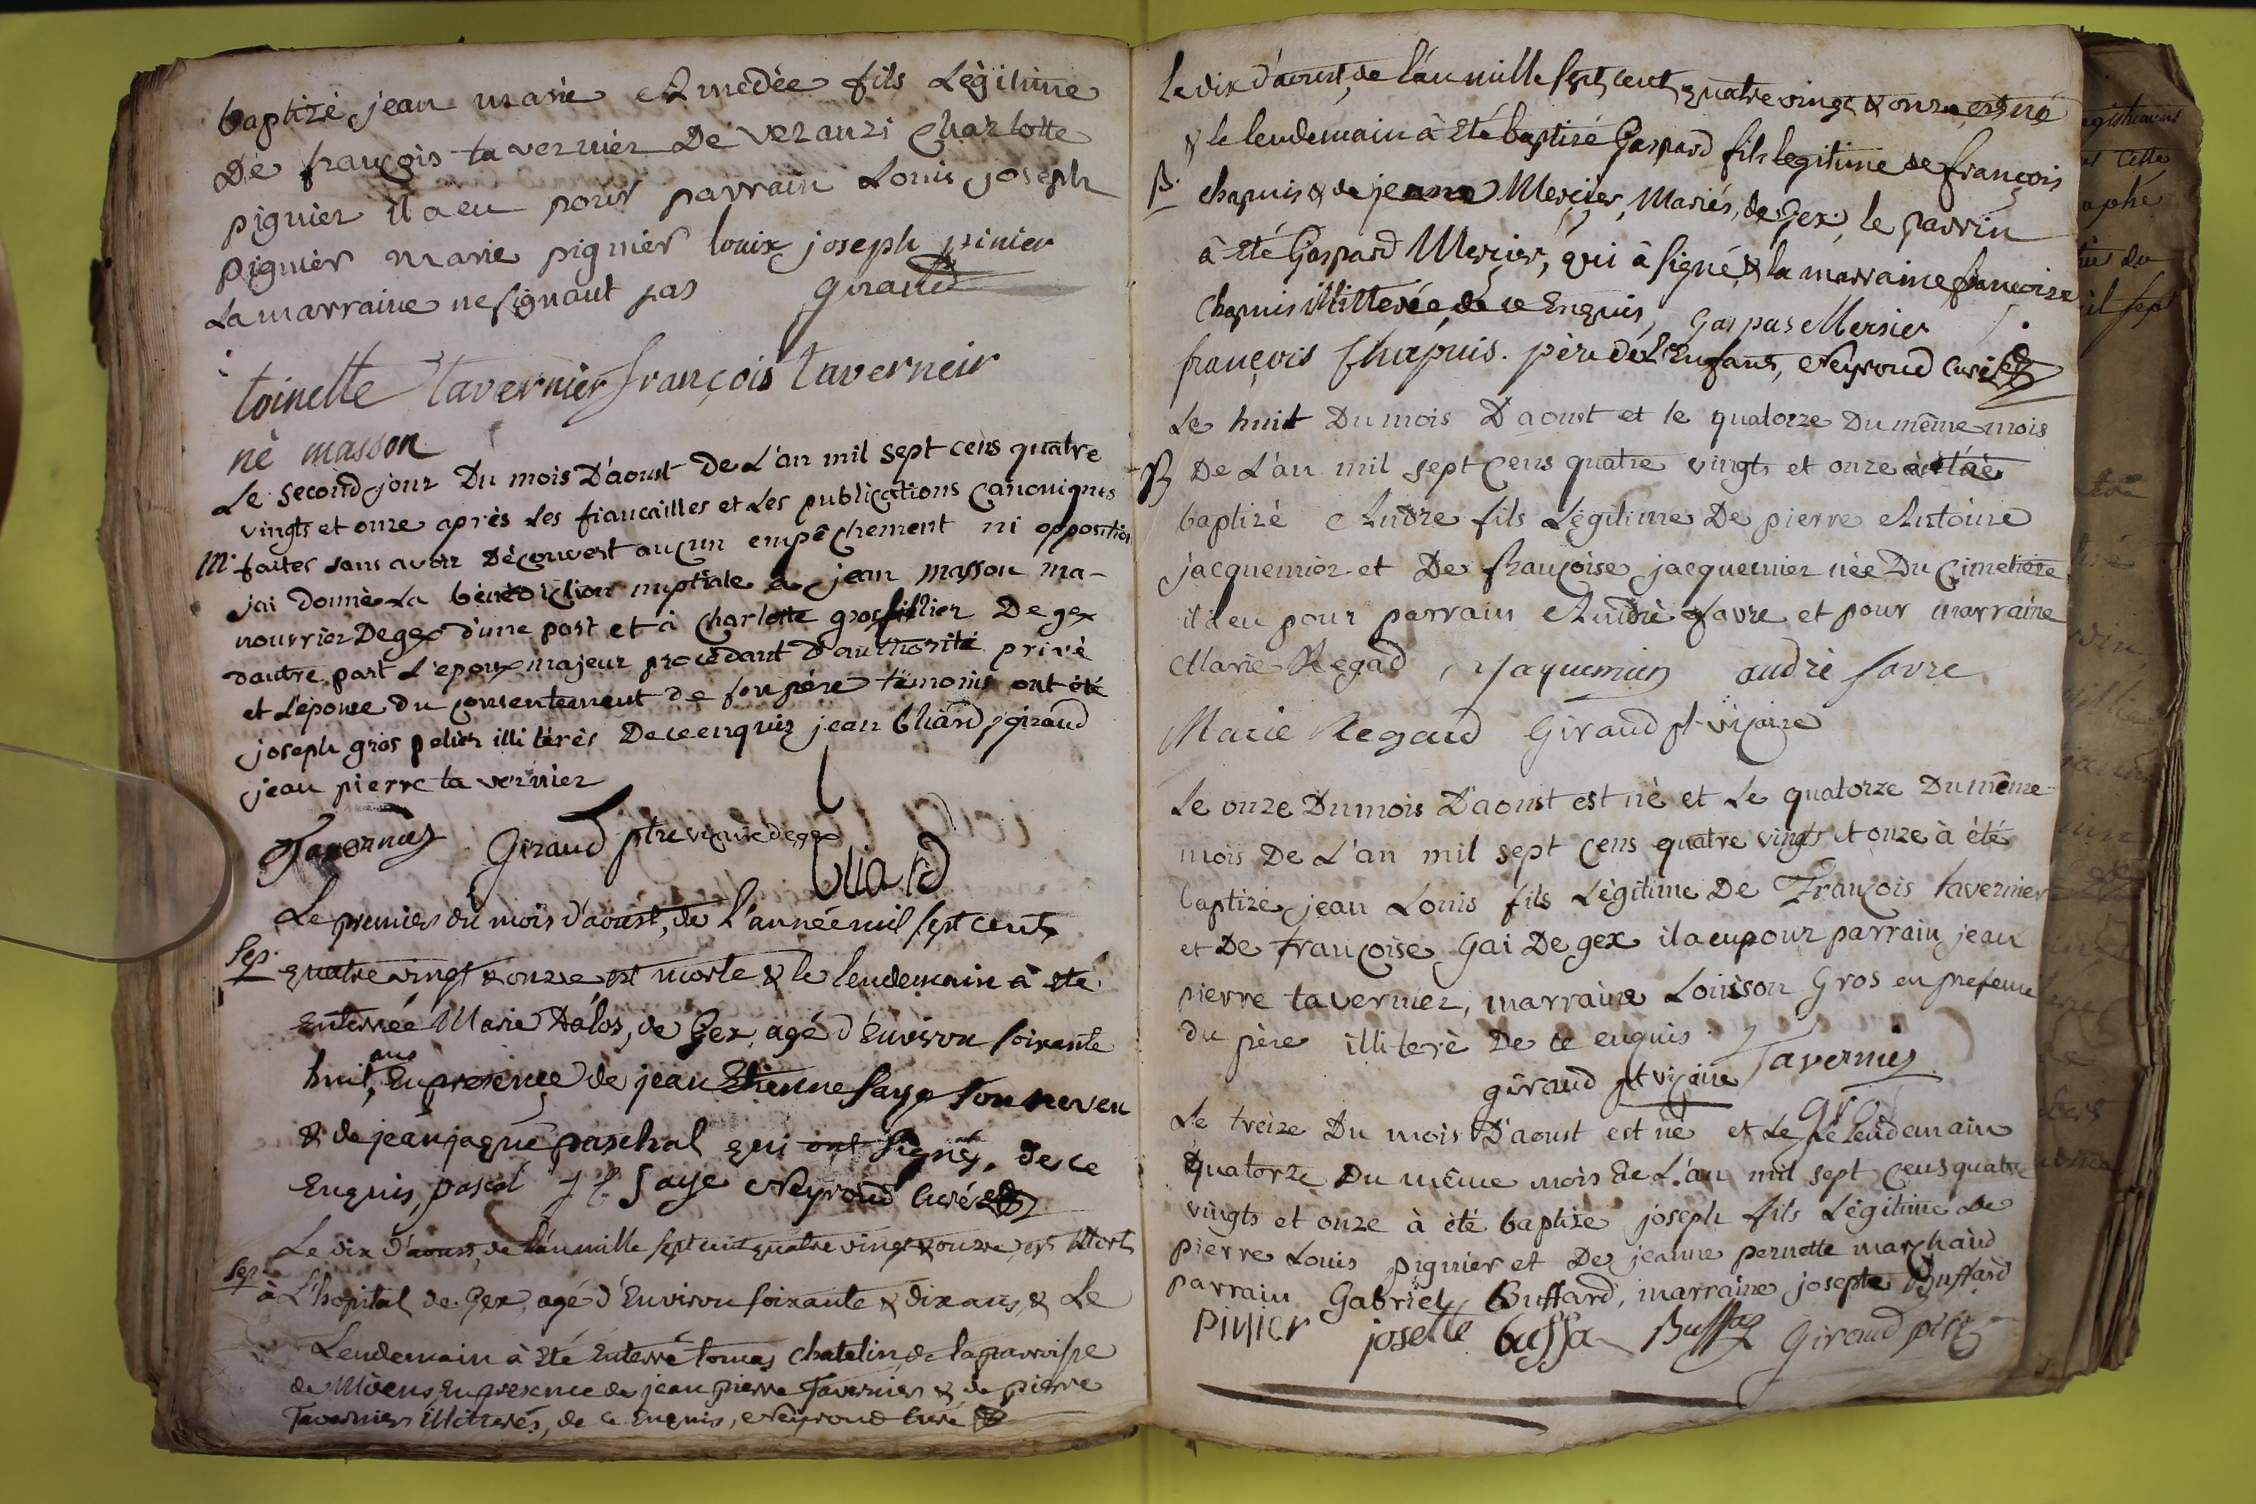 baptizé jean marie Amedée fils Légitime
De françois tavernier De veranzi Charlotte
pignier il a eu pour parrain Louis joseph
pignier marie pignier louix joseph pinier
La marraine ne signant pas giraud
toinette tavernier françois taverneir
né masson
Le second jour Du mois D'aoust De L'an mil sept cens quatre
vingts et onze après Les fiancailles et Les publications Canoniques
M. faites sans avoir Découvert aucun empêchement ni opposition
jai donné La bénédiction nuptiale à jean masson ma-
nouvrier De gex d'une part et à Charlotte grosfillier De gex
dautre part L'epoux majeur procédant D'authorité privé
et L'épouse du consentement de son père témoins ont été
joseph gros pelier illiterés De ce enquis jean bliard giraud
jean pierre tavernier
Tavernier Giraud ptre vicaire de gex
bliard
Le premier du mois d'aoust, de L'année mil sept cent
Sep. quatre vingt & onze est morte & le lendemain à eté
Enterrée Marie Dalos, de Gex, agé d'Environ soixante
huit ans, En presence de jean Etienne saye son neveu
& de jean jaque paschal qui ont signés, de ce
Enquis, pascal J E saye Neyroud Curé
Le dix d'aoust, de l'an mille sept cent quatre vingt & onze, est Mort
Sep. à L'hopital de Gex, agé d'Environ soixante & dix ans, & Le
Lendemain à eté Enterré tomas Chatelin, de la parroisse
de Mivens En presence de jean pierre Tavernier & de pierre
Tavernier illiterés, de ce Enquis, Neyroud Curé
Le dix d'aoust, de l'an mille sept cent quatre vingt & onze, est né
& le lendemain à eté baptisé Gaspard fils legitime de françois
B. chapuis & de jeane Mercier, Mariés, de Gex, le parrin
à eté Gaspard Mercier, qui à signé & la marraine françoise
Chapuis illitterée de ce Enquis, Gaspas Mersier
françois Chapuis. père de L'Enfant, Neyroud Curé
Le huit Du mois D'aoust et le quatorze Du même mois
B De L'an mil sept Cens quatre vingts et onze à été
baptizé Andre fils Légitime De pierre Antoine
jacquemier et De françoise jacquemier née Du Cimetiere
il a eu pour parrain André favre et pour marraine
Marie Regad, Jaquemier andré favre
Marie Regard Giraud pt vicaire
Le onze Du mois D'aoust est né et Le quatorze Du même
mois De L'an mil sept Cens quatre vingts et onze à été
baptizé jean Louis fils Légitime De François tavernier
et De françoise Gai De gex il a eu pour parrain jean
pierre tavernier, marraine Louison Gros en presence
du père illiteré De ce enquis Tavernier
giraud pt vicaire
Gro
Le treize Du mois D'aoust est né et Le Le lendemain
quatorze Du même mois De L'an mil sept Cens quatre
vingts et onze à été baptizé joseph fils Légitime De
pierre Louis pignier et De jeanne pernette marchand
parrain Gabriel Buffard, marraine josepte Buffard
Pinier josette bussa Buffar Giraud ptre